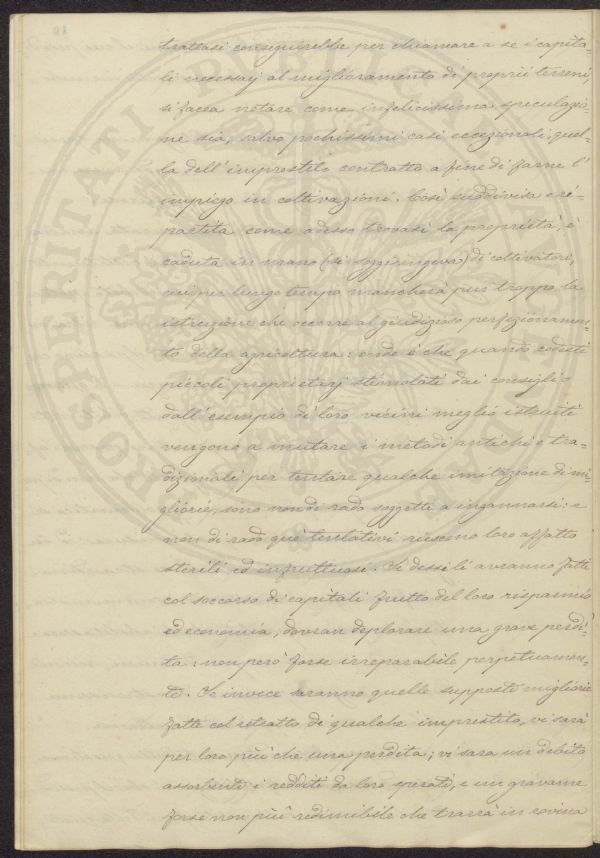 trattasi conseguirebbe per chiamare a se i capita-
li necessarj al miglioramento di proprii terreni,
si facea notare come infelicissima speculazio-
ne sia, salvo pochissimi casi eccezionali, quel-
la dell'imprestito contratto a fine di farne l'
impiego in coltivazioni. Così suddivisa e ri-
partita come adesso trovasi la proprietà, è
caduta in mano (si soggiungeva) di coltivatori,
cui per lungo tempo mancherà pur troppo la
istruzione che occorre al giudizioso perfezionamen-
to della agricoltura: onde è che quando codesti
piccoli proprietarj stimolati dai consigli o
dall'esempio di loro vicini meglio istruiti
vengono a mutare i metodi antichi e tra-
dizionali per tentare qualche imitazione di mi-
gliorie, sono non di rado soggetti a ingannarsi: e
non di rado que' tentativi riescono loro affatto
sterili ed infruttuosi. Se dessi li avranno fatti
col soccorso di capitali frutto del loro risparmio
ed economia, dovran deplorare una grave perdi-
ta: non però forse irreparabile perpetuamen-
te. Se invece saranno quelle supposte migliorie
fatte col retratto di qualche imprestito, vi sarà
per loro più che una perdita; vi sarà un debito
assorbente i redditi da loro sperati, e un gravame
forse non più redimibile che trarrà in rovina